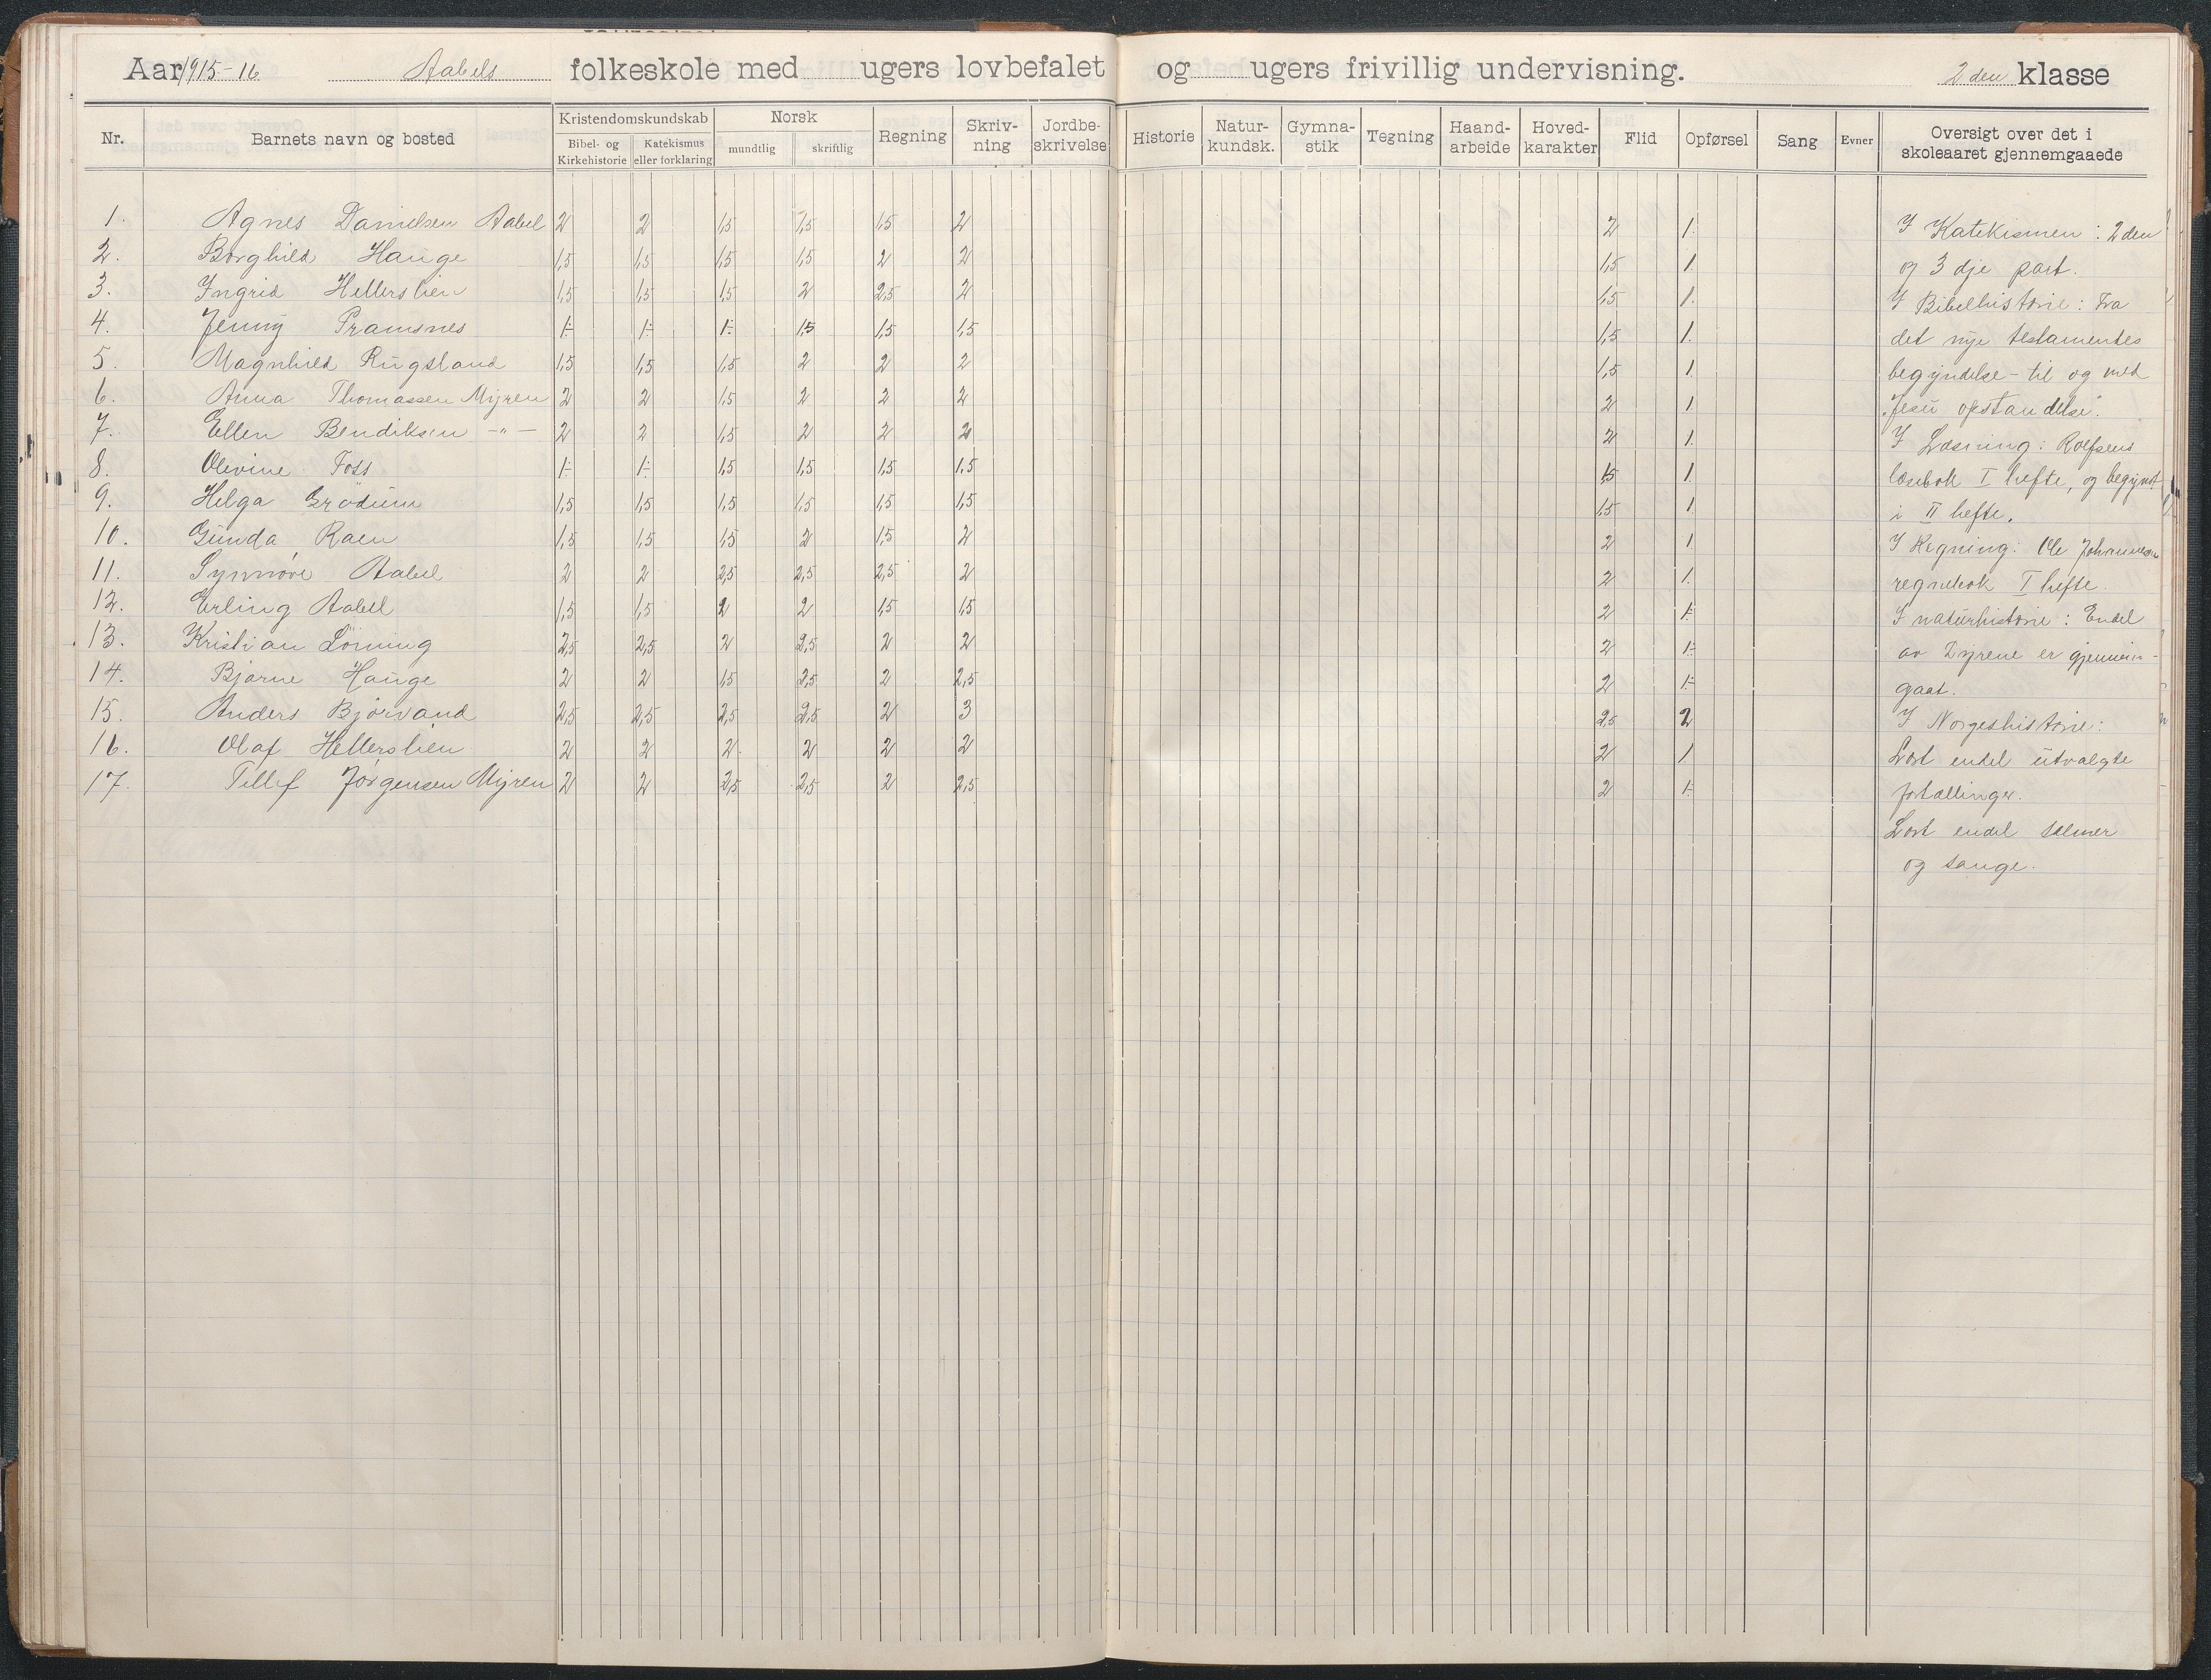 Aar 1915-16 Aabels folkeskole med ugers lovbefalet og ugers frivillig undervisning. 2 den klasse
Nr. Barnets navn og bosted Kristendomskundskab Bibel- og Kirkehistorie Katekismus eller forklaring Norsk mundtlig skriftlig Regning Skriv-ning Jordbe-skrivelse Historie Natur-kundsk. Gymna-stik Tegning Haand-arbeide Hoved-karakter Flid Opførsel Sang Evner Oversigt over det i skoleaaret gjennemgaaede
1. Agnes Danielsen Aabel 2 2 1,5 1,5 1,5 2 2 1.
2. Borghild Hauge 1,5 1,5 1,5 1,5 2 2 1,5 1.
3. Ingrid Hellerslien 1,5 1,5 1,5 2 2,5 2 1,5 1.
4. Jenny Pramsnes 1- 1- 1- 1,5 1,5 1,5 1,5 1.
5. Magnhild Rugsland 1,5 1,5 1,5 2 2 2 1,5 1.
6. Anna Thomassen Myren 2 2 1,5 2 2 2 2 1.
7. Ellen Bendiksen -"- 2 2 1,5 2 2 2 2 1.
8. Olevine Foss 1- 1- 1,5 1,5 1,5 1,5 1,5 1.
9. Helga Grödum 1,5 1,5 1,5 1,5 1,5 1,5 1,5 1
10. Gunda Raen 1,5 1,5 1,5 2 1,5 2 2 1
11. Synnøve Aabel 2 2 2,5 2,5 2,5 2 2 1.
12. Erling Aabel 1,5 1,5 2 2 1,5 1,5 2 1-
13. Kristian Lönning 2,5 2,5 2 2,5 2 2 2 1-
14. Bjarne Hauge 2 2 1,5 2,5 2 2,5 2 1-
15. Anders Björvand 2,5 2,5 2,5 2,5 2 3 2,5 2
16. Olaf Hellerslien 2 2 2 2 2 2 2 1
17. Tellef Jörgensen Myren 2 2 2,5 2,5 2 2,5 2 1-
I Katekismen: 2 den
og 3 dje part.
I Bibelhistorie: Fra
det nye testamentes
begyndelse - til og med
"Jesu opstandelse".
I Læsning: Rolfsens
læsebok I hefte, og begynt
i II hefte.
I Regning: Ole Johannesen
regnebok I hefte.
I naturhistorie: Endel
av Dyrene er gjennem-
gaat.
I Norgeshistorie:
Læst endel utvalgte
fortællinger.
Lært endel salmer
og sange.